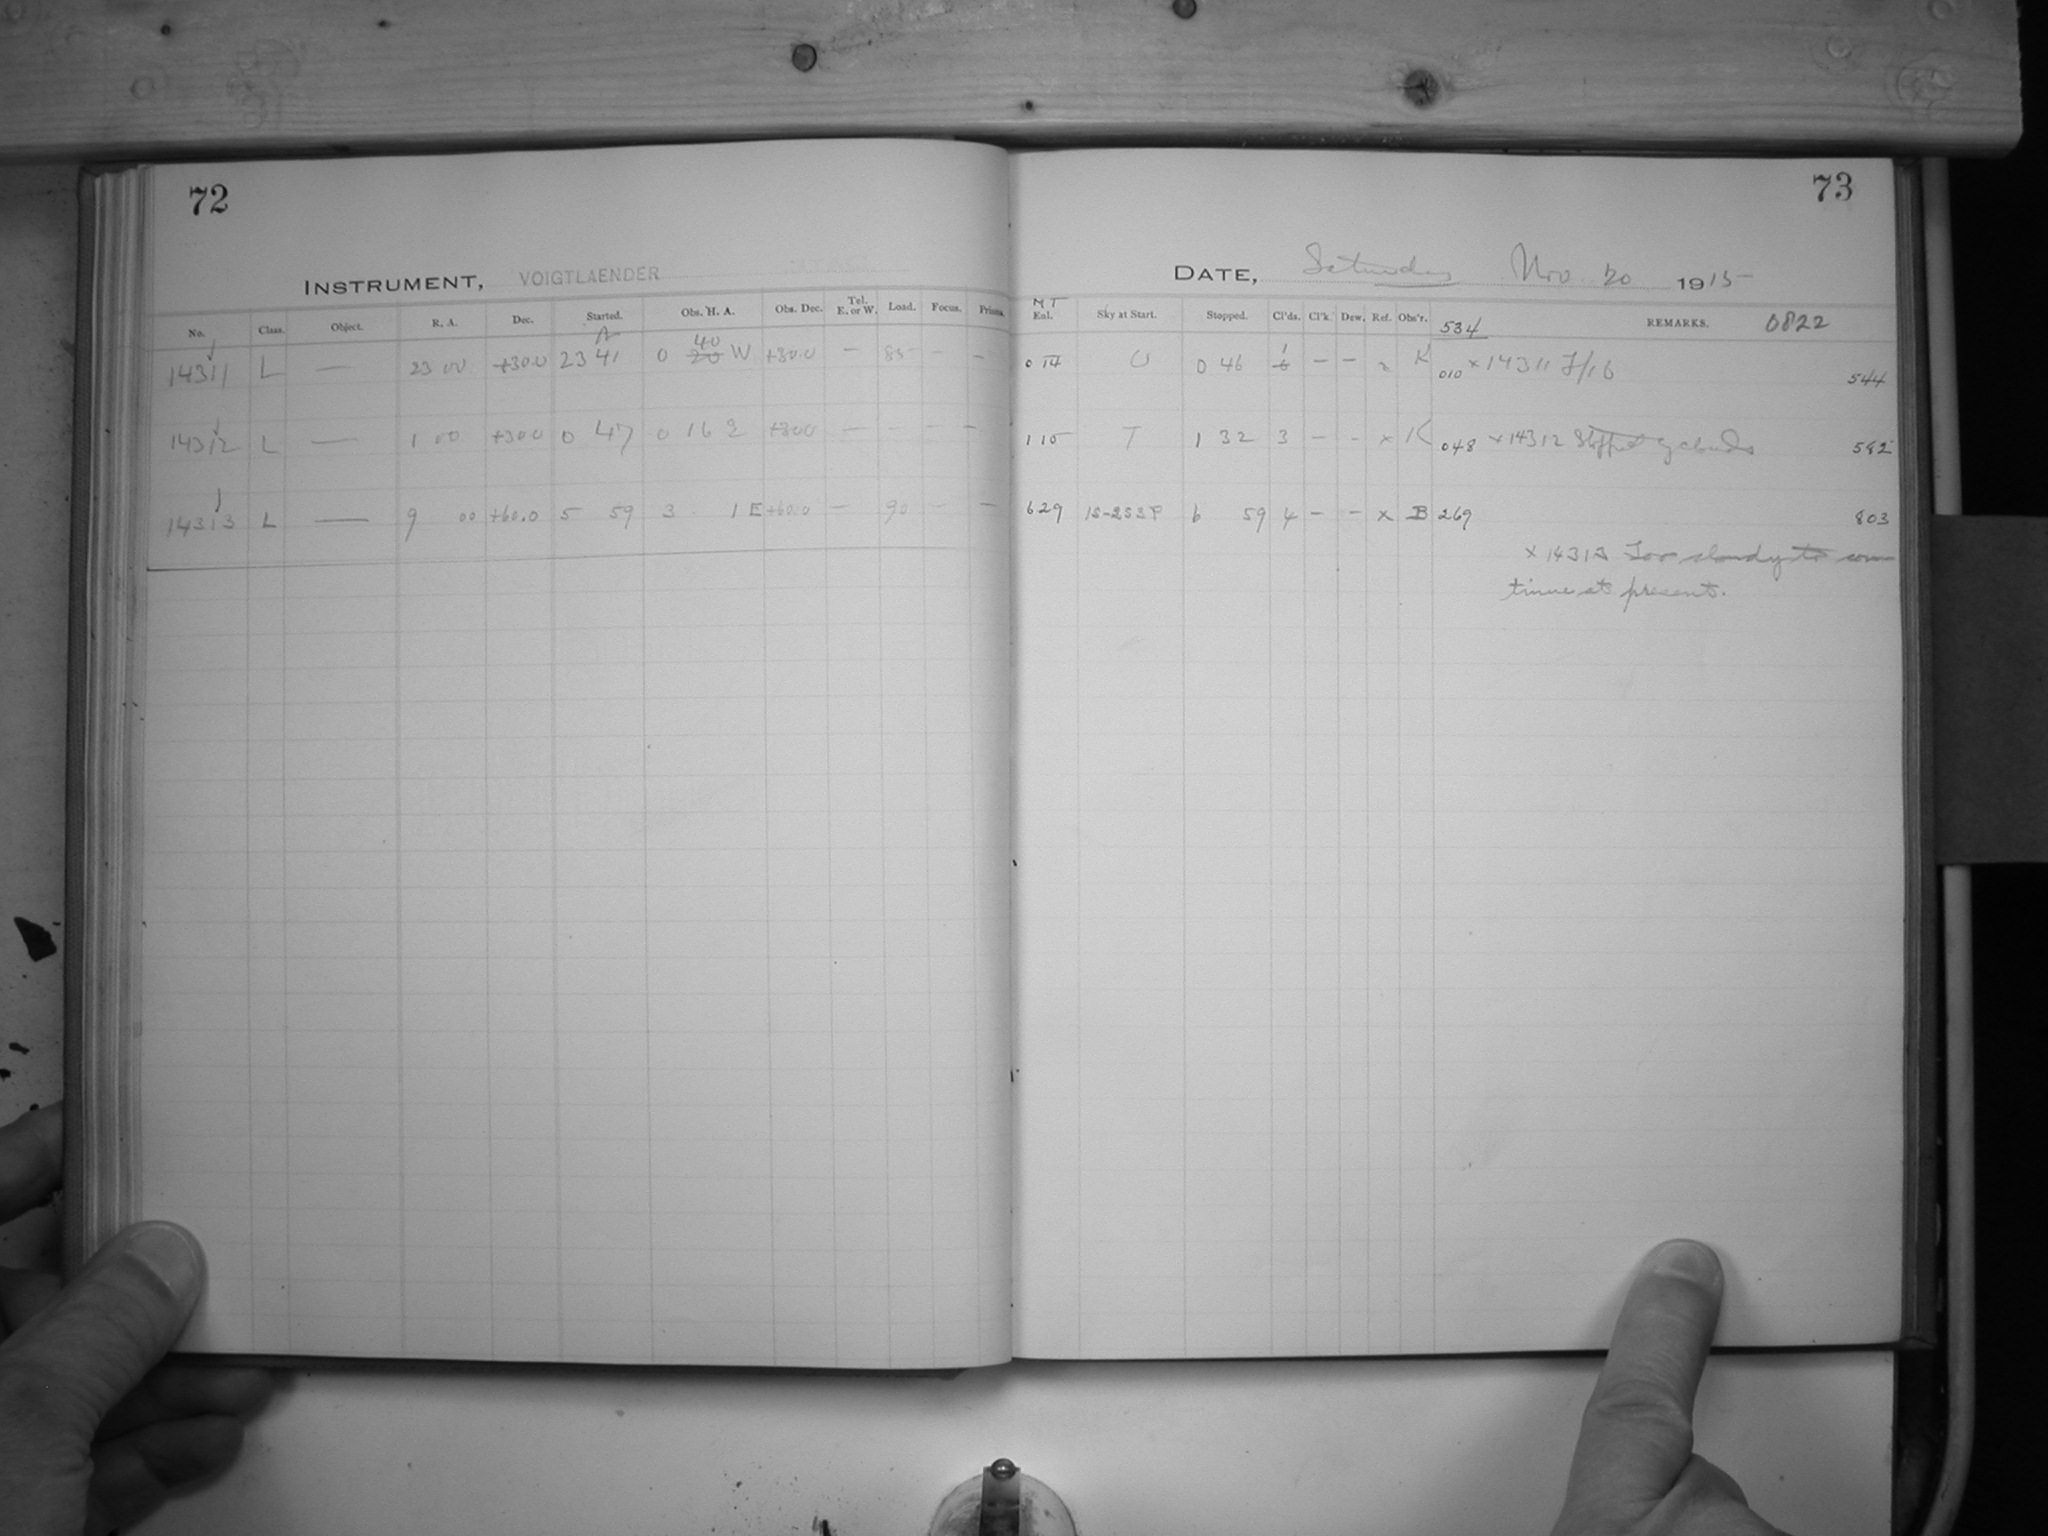 72
INSTRUMENT, VOIGTLAENDER
No. Class. Object. R. A. Dec. Started. Obs. H. A. Obs. Dec. Tel. E. or W. Load. Focus. Prisms.
14311 L — 23 00 +30.0 23 41 0 40 20 W +30.0 — 85 - -
14312 L — 1 00 +30.0 0 47 0 16 E +30.0 — - - -
14313 L — 9 00 +60.0 5 59 3 1 E +60.0 — 90 — —
73
DATE, Saturday Nov. 20 1915
Sky at Start. Stopped. Cl'ds. Cl'k. Dew. Ref. Obs'r. 534 REMARKS. 0822
0 14 U 0 46 1 — — K 010 × 14311 F/16 544
1 10 T 1 32 3 — - × K 048 × 14312 Stopped by clouds 582
6 29 1S-2S3P 6 59 4 — — × B 269 803
× 14313 Too cloudy to con
tinue at present.